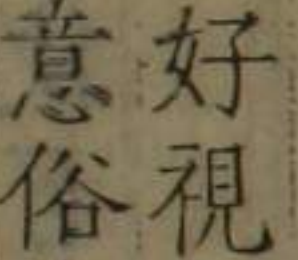 好視
意俗